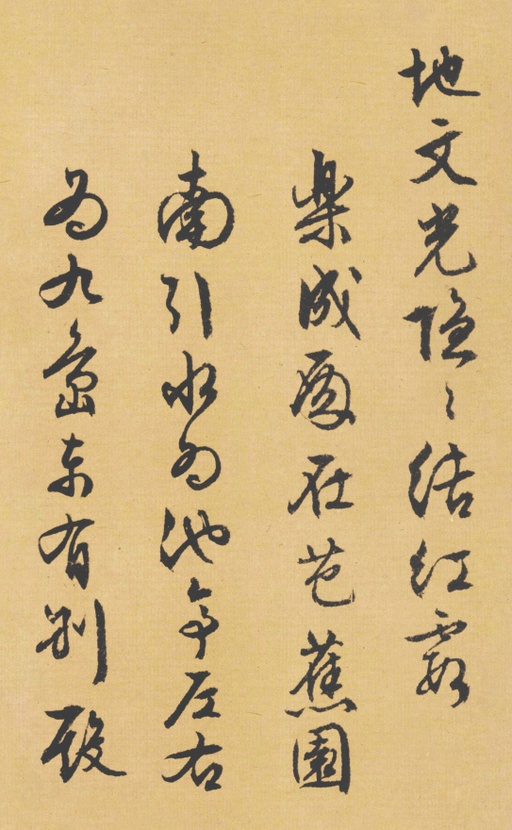 地文光隐〻结红霞
乐成殿在芭蕉园
南引水为池亭左右
为九岛东有别殿